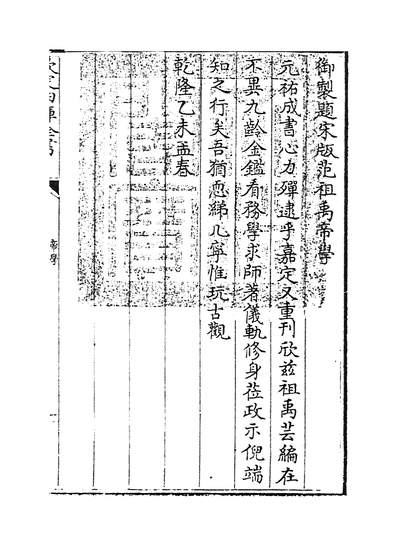 御製題宋版范祖禹帝學
元祐成書心力殫逮乎嘉定又重刊欣兹祖禹芸編在
不異九齡金鑑看務學求師著儀軌修身莅政示倪端
知之行矣吾猶恧綈几寧惟玩古觀
乾隆乙未孟春
欽定四庫全書
帝學